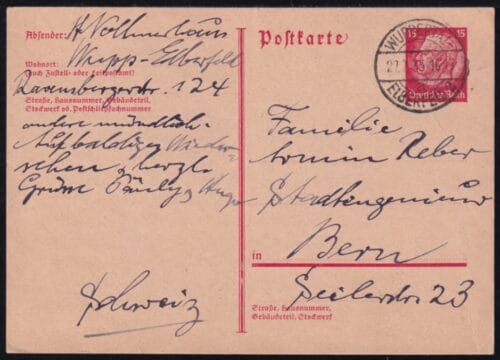 Absender: A Vollmerhaus
Wohnort: Wupp-Elberfeld
Auch Zustell- oder Leitpostamt
Ravensbergerstr. 124
Straße, Hausnummer, Gebäudeteil,
Stockwerk od. Postschließfachnummer
andere mündlich.
Auf baldiges Wieder-
sehen, herzl.
Grüsse Pauly u Hugo
Schweiz
Postkarte
15 15
Deutsches Reich
WUPPERTAL
ELBERFELD
Familie
Armin Reber
Stadtingenieur
in Bern
Seilerstr 23
Straße, Hausnummer,
Gebäudeteil, Stockwerk